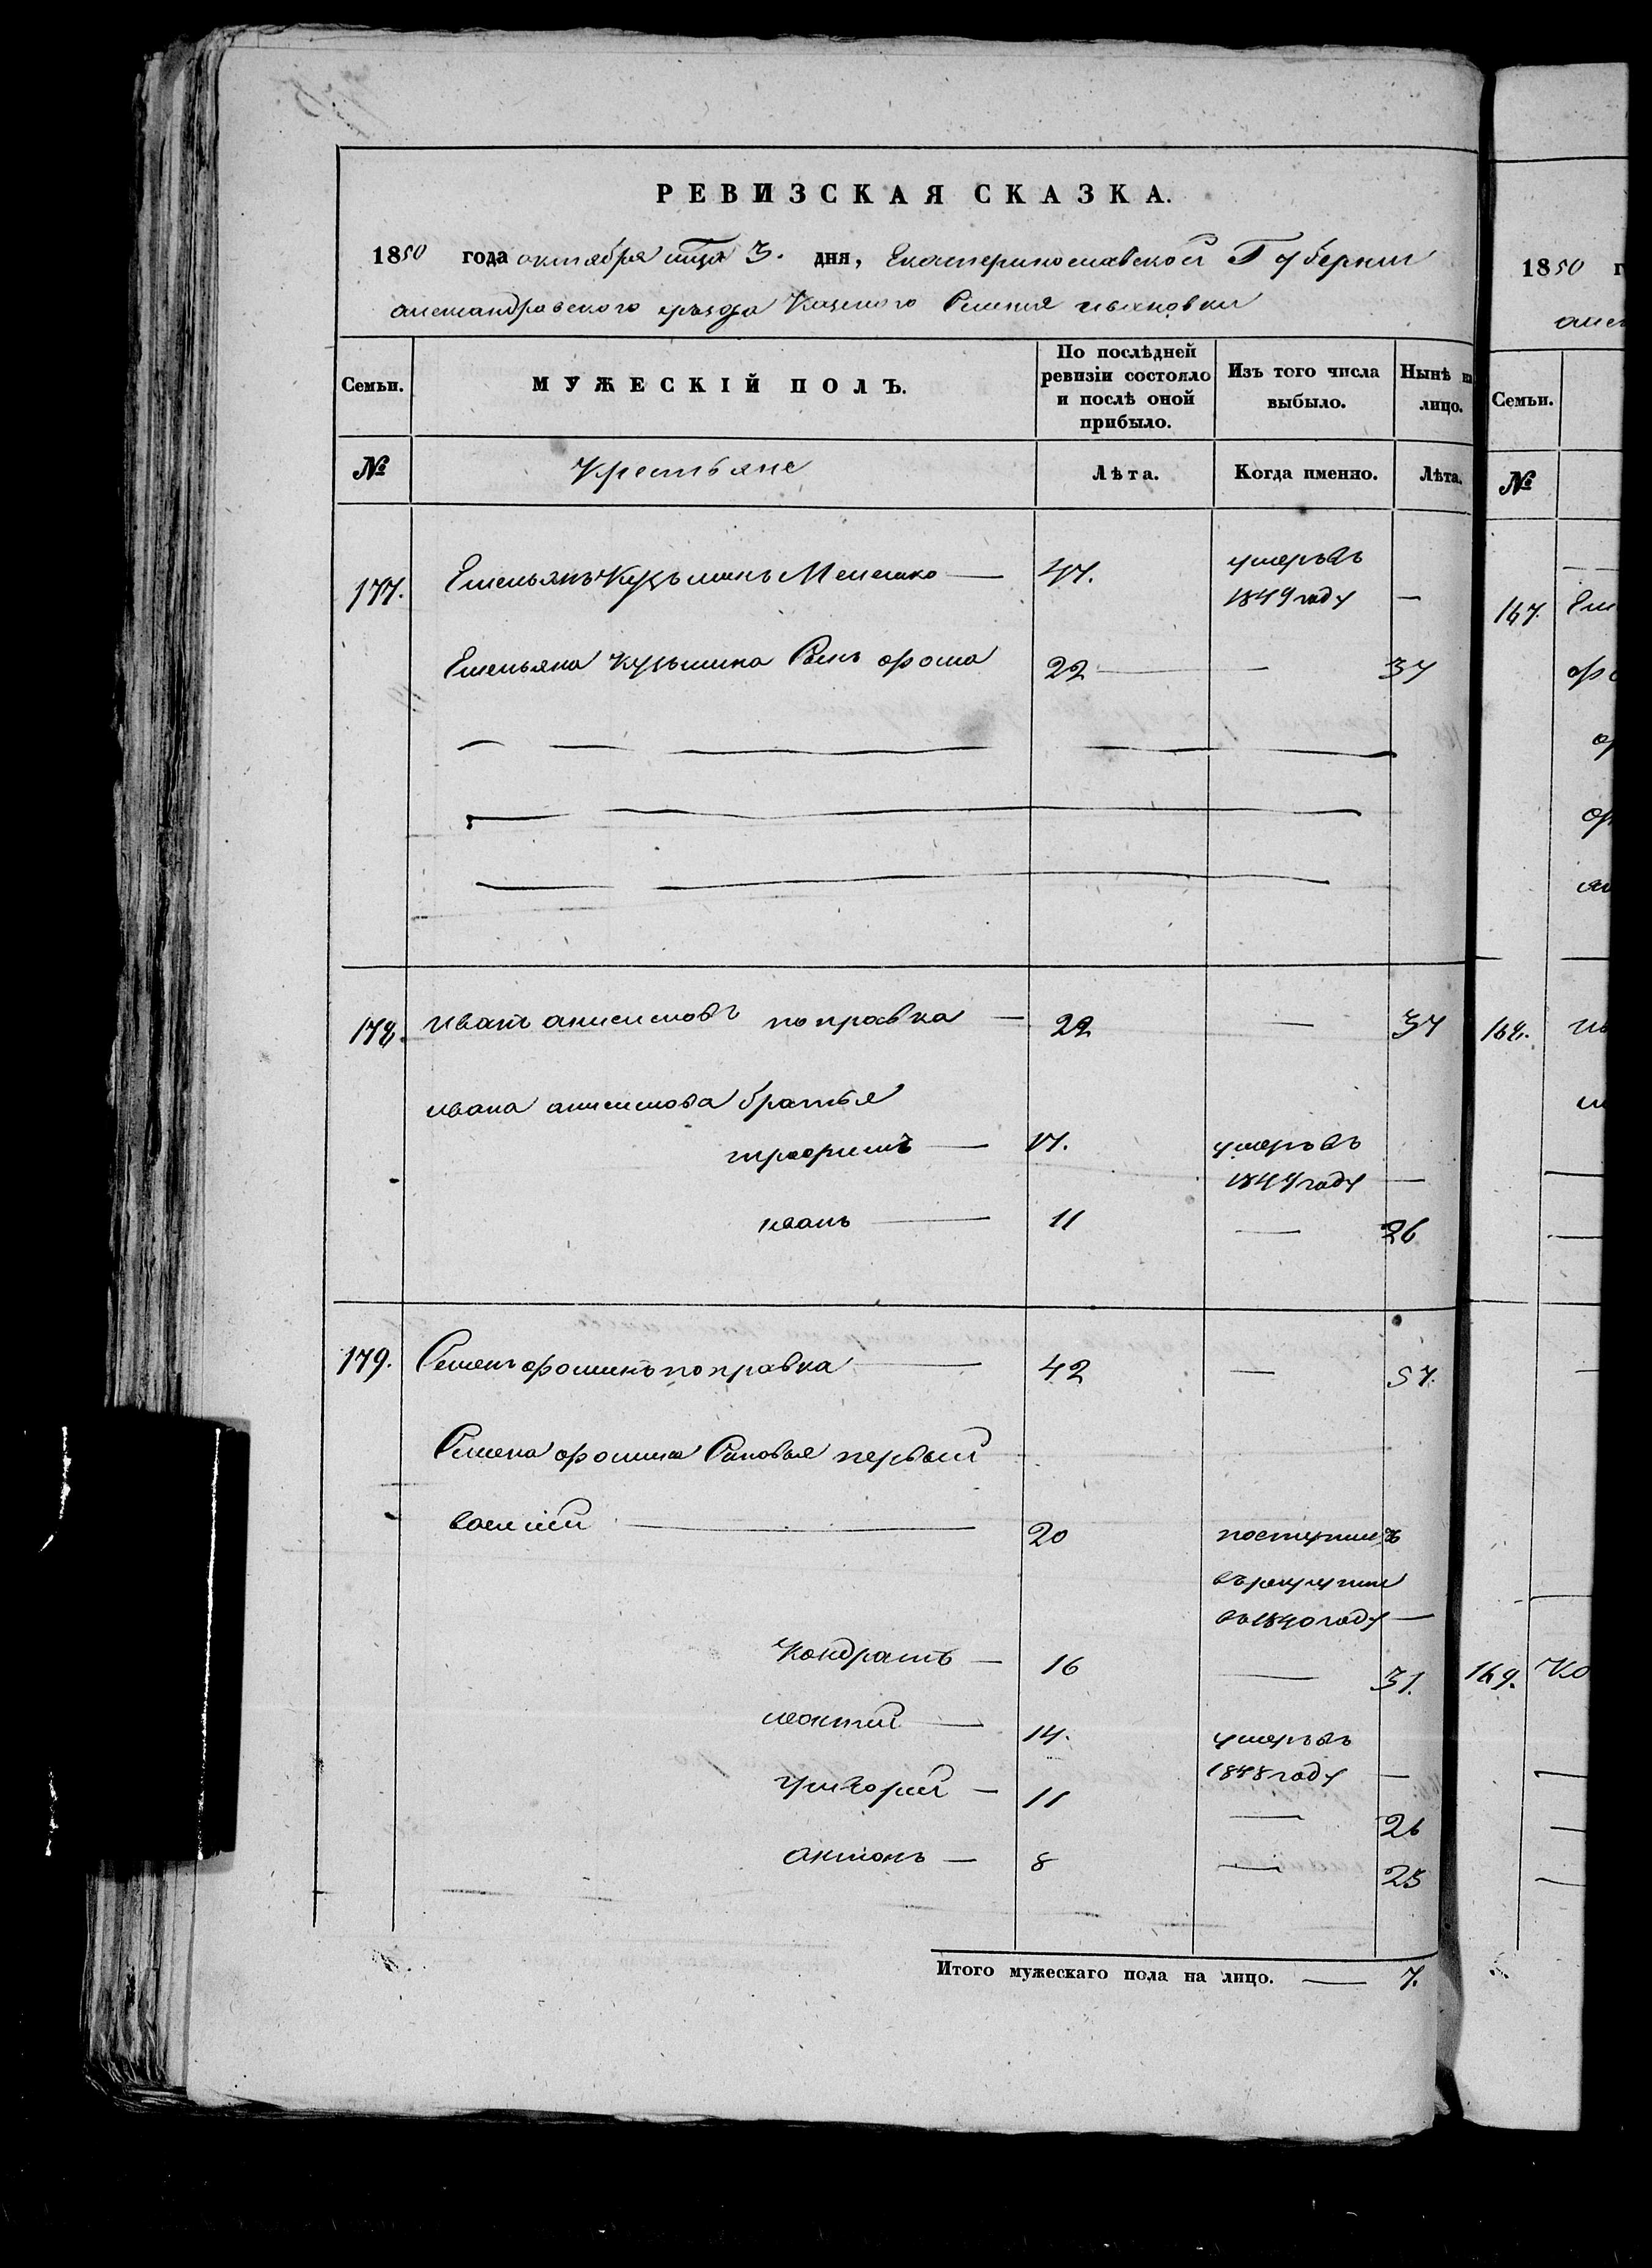 РЕВИЗСКАЯ СКАЗКА.
1850 года октября мца 3. дня, Екатеринославской Губернии
александровского уъзда Казеного Селения ивановки
Семьи.
МУЖЕСКІЙ ПОЛЪ.
По послѣдней ревизіи состояло и послѣ оной прибыло.
Изъ того числа выбыло.
Нынѣ на лицо.
№
Крестьяне
Лѣта.
Когда именно.
Лѣта.
177. Емельянъ Кузьминъ 47. умеръ въ
1849 году —
Емельяна Кузьмина Сынъ фома 22 — 37
178. иванъ анисимовъ поправка — 22 — 37
ивана анисимова братья
трофимъ — 17. умеръ въ
1844 году —
иванъ — 11 — 26
179. Семенъ фоминъ поправка — 42 — 57.
Семена фомина Синовья первый
василий — 20 поступилъ
въ рекруты
въ 1840 году —
Кондратъ — 16 — 31.
14. умеръ въ
1848 году —
григорий — 11 — 26
антонъ — 8 — 23
Итого мужескаго пола на лицо. — 7.
1850 г
Семьи.
№
167.
168.
169. Ко